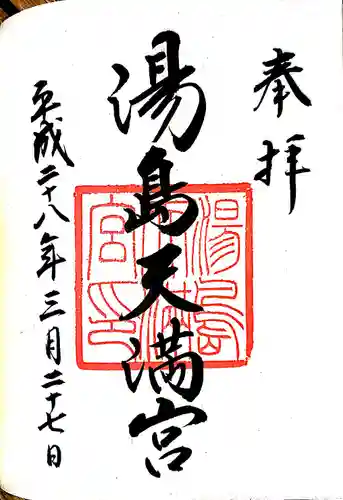 奉拝
湯島天満宮
平成二十八年三月二十七日
湯島
天満
宮印